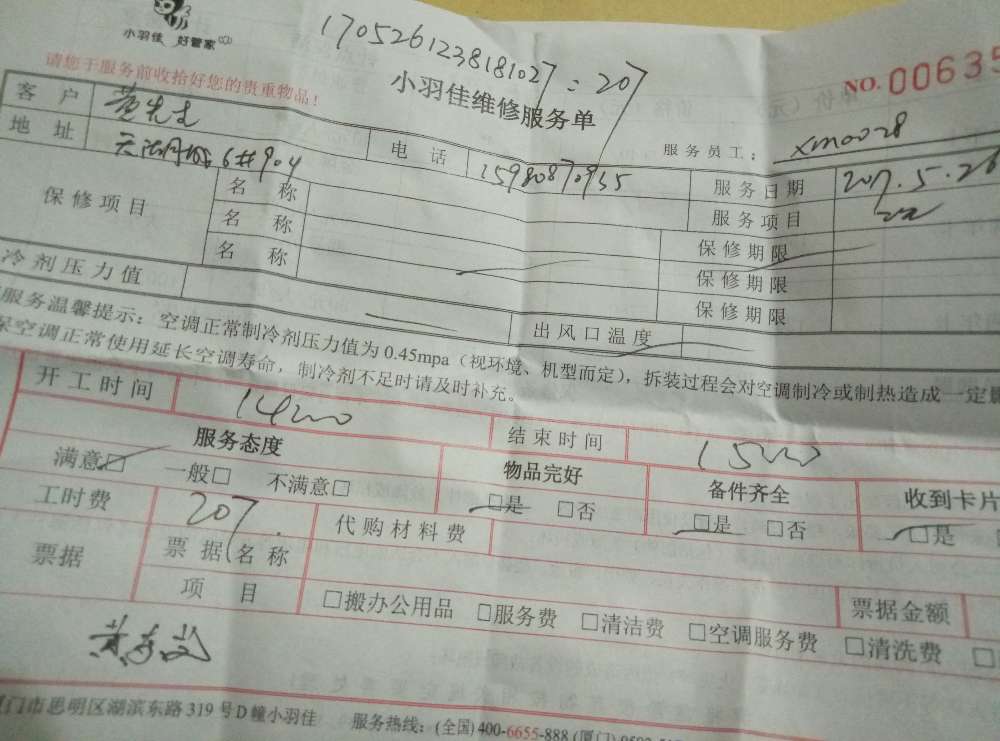 小羽佳 好管家
1705261238181027=207
请您于服务前收拾好您的贵重物品！
小羽佳维修服务单
NO.00635
服务员工： xm0028
客户 黄先生
电话 15980870935
服务日期 2017.5.26
地址 6#904
服务项目
保修项目
名称
保修期限
名称
保修期限
名称
保修期限
冷剂压力值
出风口温度
服务温馨提示：空调正常制冷剂压力值为0.45mpa（视环境、机型而定），拆装过程会对空调制冷或制热造成一定
保空调正常使用延长空调寿命，制冷剂不足时请及时补充。
开工时间 1400
结束时间 1500
服务态度
物品完好
备件齐全
收到卡片
满意□ 一般□ 不满意□
□是 □否
□是 □否
□是
工时费 207.
代购材料费
票据
票据名称
项目
□搬办公用品 □服务费 □清洁费 □空调服务费 □清洗费
票据金额
门市思明区湖滨东路319号D幢小羽佳 服务热线：(全国)400-6655-888(厦门)